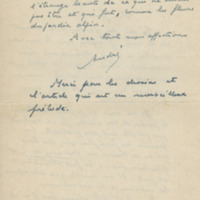 l'étrange beauté de ce que ne
pas être et que fut, comme les fleurs
du jardin alpin.
Avec toute mon affection
Merci pour les dessins et
l'article qui est un merveilleux
prélude.